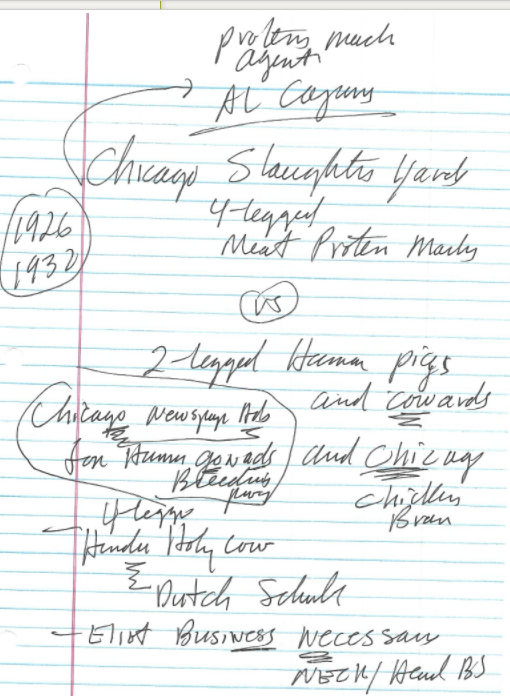 Protein much
agent
AL Capuns
Chicago Slaughters Yard
4-legged
Meat Protein
1926
1932
VS
2-legged Human pigs
and cowards
Chicago Newspaper Ads
for Human gonads
Breeding
and Chicago
Chicken
Brain
4-leggs
Hindu Holy Cow
Dutch Schult
- Eliot Business Necessary
NECK/Head BS